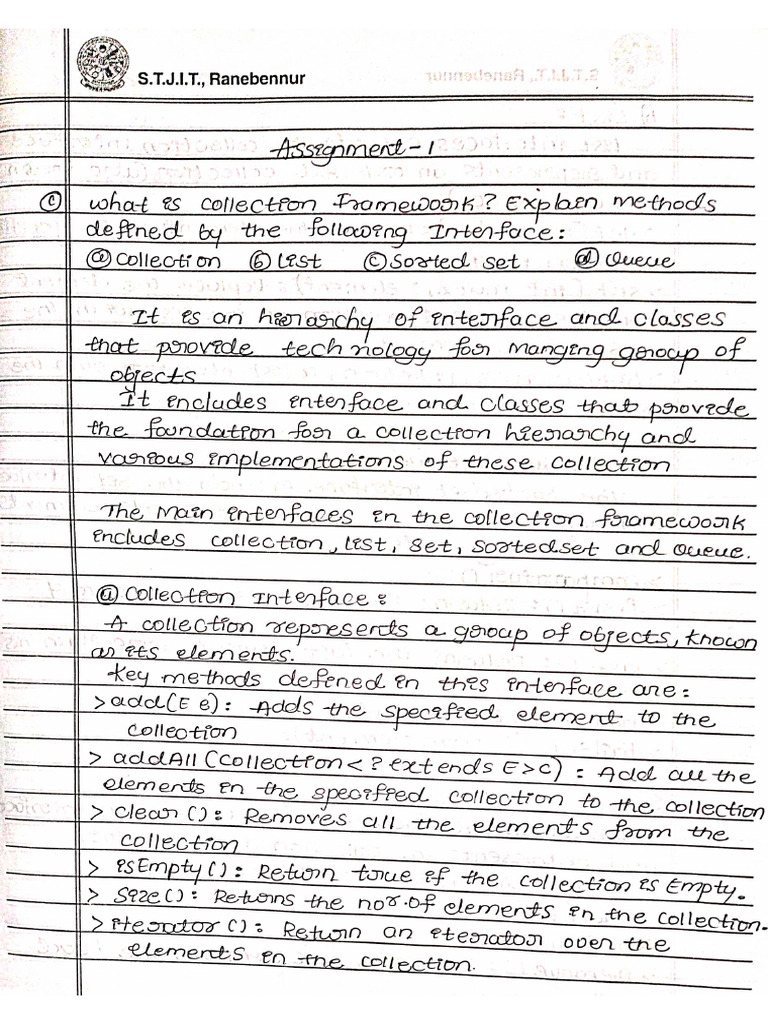 S.T.J.I.T., Ranebennur
Assignment-1
(c) what is collection Framework? Explain methods
defined by the following Interface:
(a) Collection (b) List (c) Sorted set (d) Queue
It is an hierarchy of interface and classes
that provide technology for manging group of
objects
It includes interface and classes that provide
the foundation for a collection hierarchy and
various implementations of these collection
The main interfaces in the collection framework
includes collection, List, Set, Sortedset and Queue.
(a) Collection Interface:
A collection represents a group of objects, known
as its elements.
Key methods defined in this interface are:
> add(E e): Adds the specified element to the
collection
> addAll (Collection< ? extends E>c) : Add all the
elements in the specified collection to the collection
> clear (): Removes all the elements from the
collection
> isEmpty(): Return true if the collection is Empty.
> Size(): Returns the no. of elements in the collection.
> iterator (): Return an iterator over the
elements in the collection.